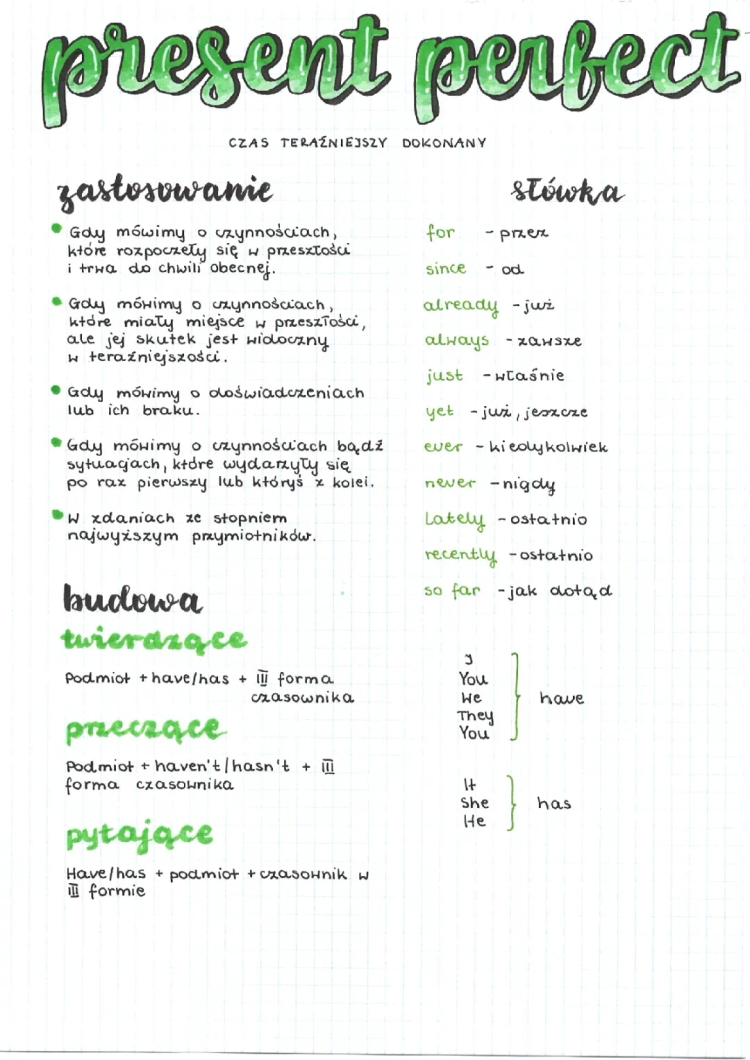 present perfect
CZAS TERAŹNIEJSZY DOKONANY
zastosowanie
Gdy mówimy o czynnościach,
które rozpoczęły się w przeszłości
i trwa do chwili obecnej.
Gdy mówimy o czynnościach,
które miały miejsce w przeszłości,
ale jej skutek jest widoczny
w teraźniejszości.
Gdy mówimy o doświadczeniach
lub ich braku.
Gdy mówimy o czynnościach bądź
sytuacjach, które wydarzyły się
po raz pierwszy lub któryś z kolei.
W zdaniach ze stopniem
najwyższym przymiotników.
budowa
twierdzące
Podmiot + have/has + III forma
czasownika
przeczące
Podmiot + haven't/hasn't + III
forma czasownika
pytające
Have/has + podmiot + czasownik w
III formie
słówka
for - przez
since - od
already - już
always - zawsze
just - właśnie
yet - już, jeszcze
ever - kiedykolwiek
never - nigdy
Lately - ostatnio
recently - ostatnio
so far - jak dotąd
I
You
We
They
You
have
It
She
He
has